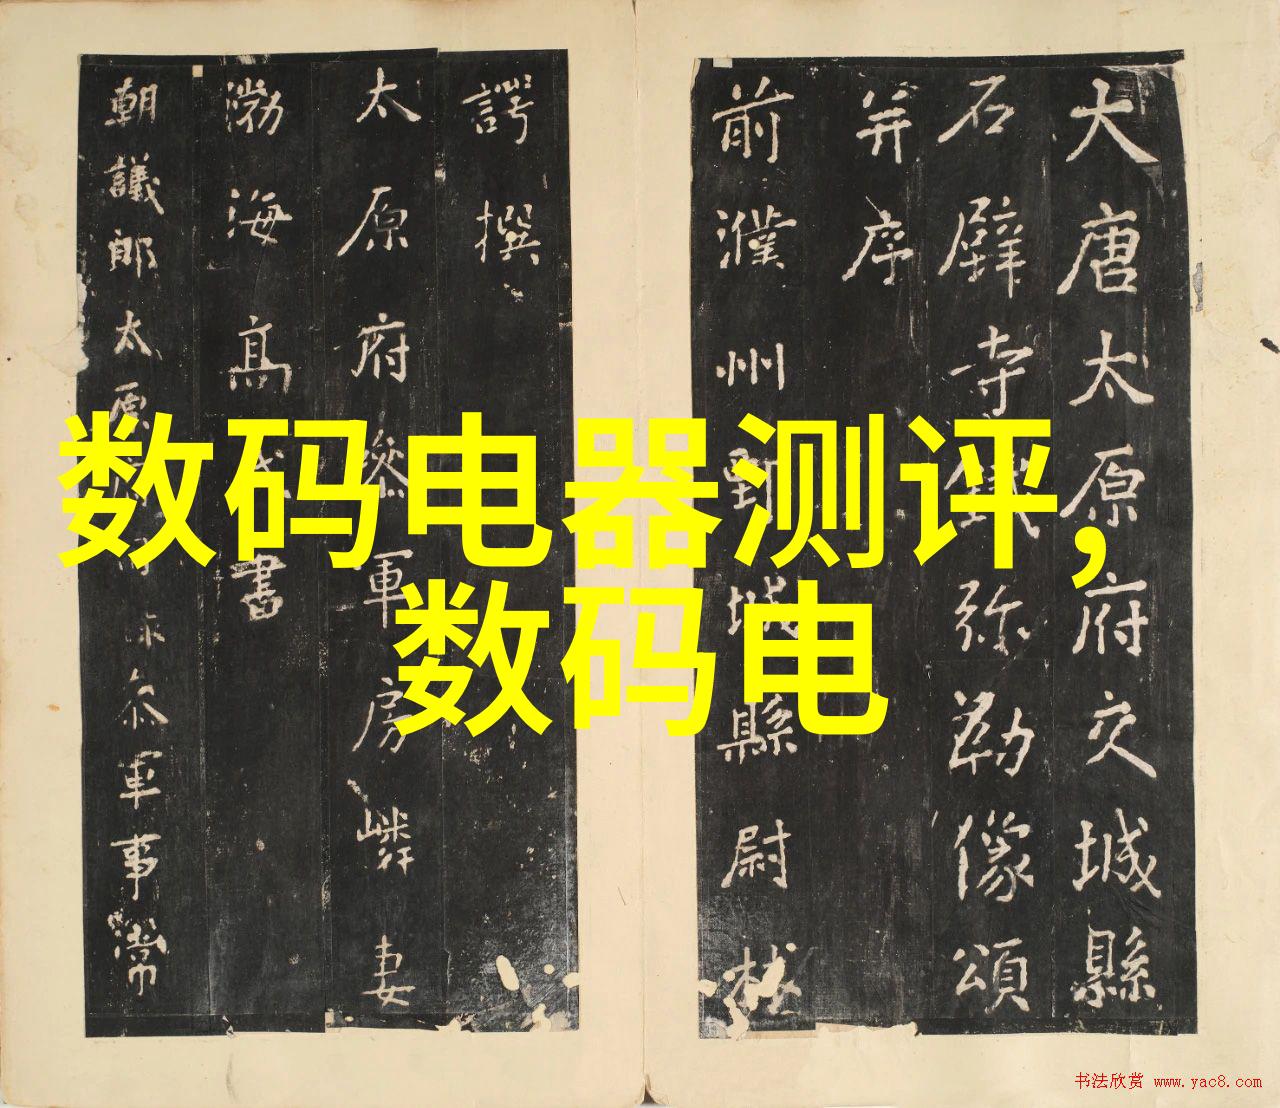 大唐太原府交城縣
石壁寺鐵弥勒像頌
并序
前濮州鄄城縣尉林
諤撰
太原府叅軍房嶙妻
渤海高氏書
朝議郎太原府叅軍事常
数码电器测评,
数码电
书法欣赏 www.yac8.com